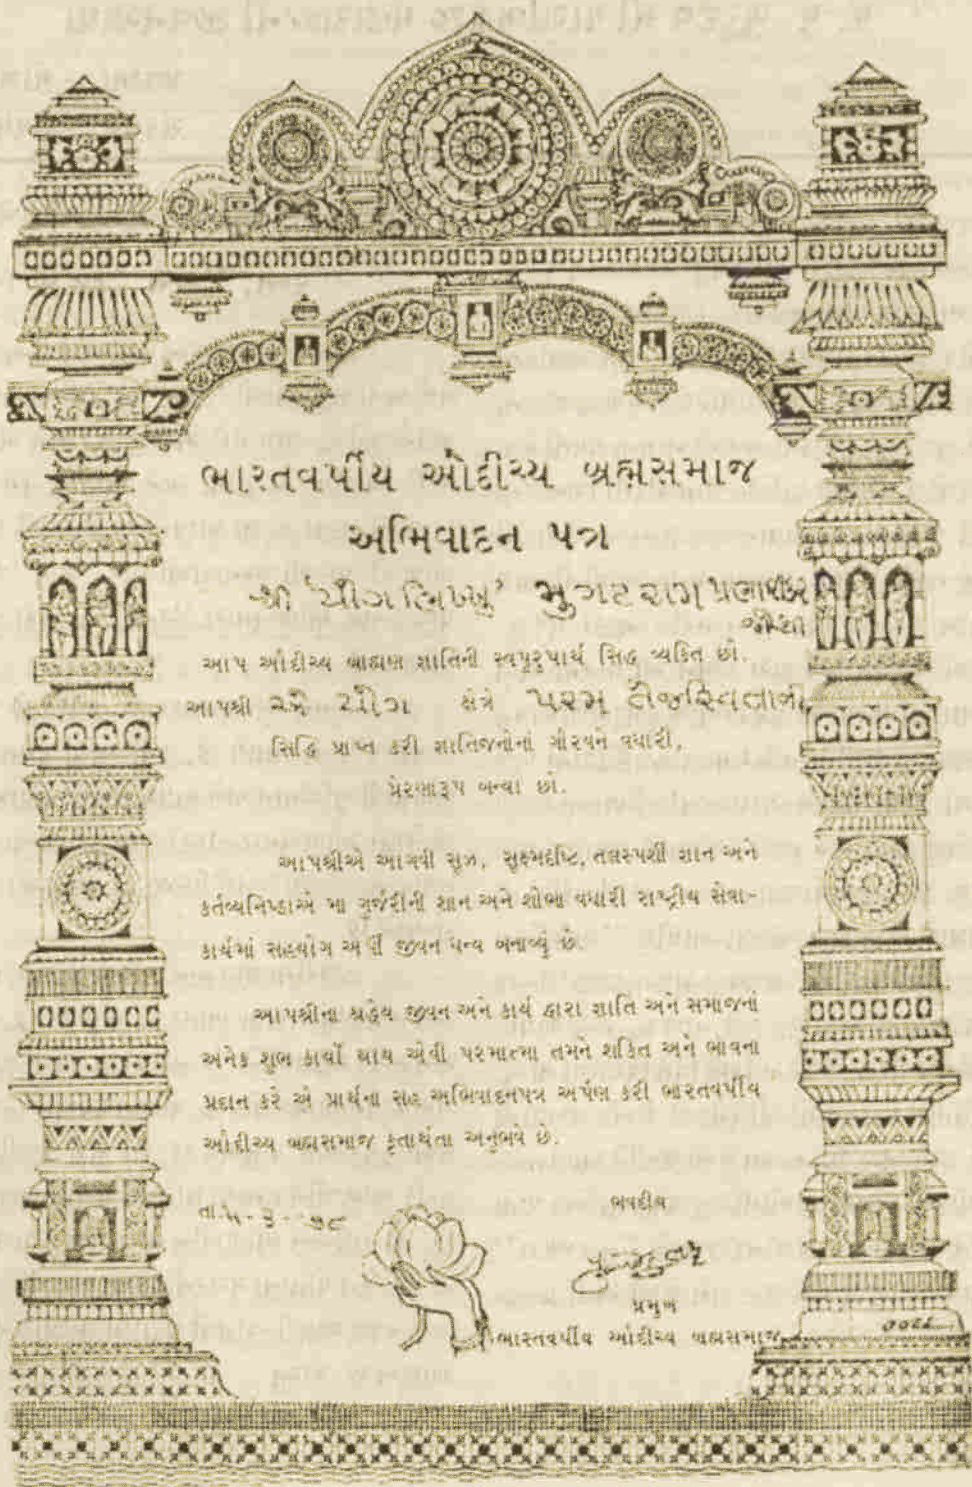 ભારતવર્ષીય ઔદીચ્ય બ્રહ્મસમાજ
અભિવાદન પત્ર
શ્રી 'યોગ ભિખ્ખુ' મુગટરામ
જોષી
આપ ઔદીચ્ય બ્રાહ્મણ જ્ઞાતિની સ્વપુરૂષાર્થ સિદ્ધ વ્યકિત છો.
આપશ્રી યોગ ક્ષેત્રે પરમ તેજસ્વિતાની
સિદ્ધિ પ્રાપ્ત કરી જ્ઞાતિજનોનાં ગૌરવને વધારી,
પ્રેરણારૂપ બન્યા છો.
આપશ્રીએ આગવી સૂઝ, સૂક્ષ્મદ્રષ્ટિ, તલસ્પર્શી જ્ઞાન અને
કર્તવ્યનિષ્ઠાએ મા ગુર્જરીની શાન અને શોભા વધારી રાષ્ટ્રીય સેવા-
કાર્યમાં સહયોગ અર્પી જીવન ધન્ય બનાવ્યું છે.
આપશ્રીના શ્રદ્ધેય જીવન અને કાર્ય દ્વારા જ્ઞાતિ અને સમાજનાં
અનેક શુભ કાર્યો થાય એવી પરમાત્મા તમને શકિત અને ભાવના
પ્રદાન કરે એ પ્રાર્થના સહ અભિવાદનપત્ર અર્પણ કરી ભારતવર્ષીય
ઔદીચ્ય બ્રહ્મસમાજ કૃતાર્થતા અનુભવે છે.
ભવદીય
પ્રમુખ
ભારતવર્ષીય ઔદીચ્ય બ્રહ્મસમાજ